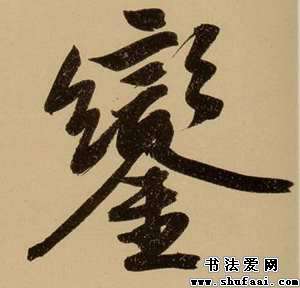 鑾
书法爱网
www.shufaai.com